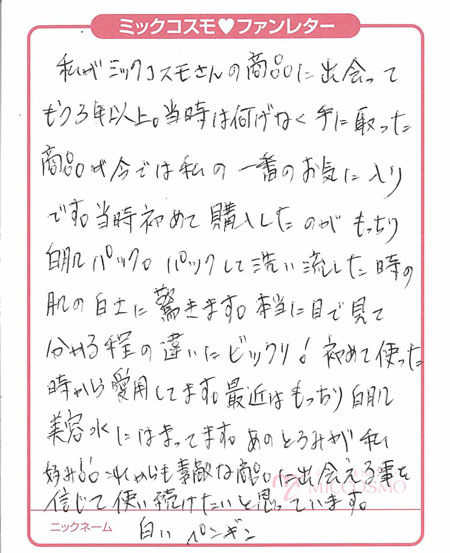 ミックコスモ♥ファンレター
私がミックコスモさんの商品に出会って
もう3年以上。当時は何げなく手に取った
商品が今では私の一番のお気に入り
です。当時初めて購入したのがもっちり
白肌パック。パックして洗い流した時の
肌の白さに驚きます。本当に目で見て
分かる程の違いにビックリ！初めて使った
時から愛用してます。最近はもっちり白肌
美容水にはまってます。あのとろみが私
好み♡これからも素敵な商品に出会える事を
信じて使い続けたいと思っています。
MICCOSMO
ニックネーム 白いペンギン